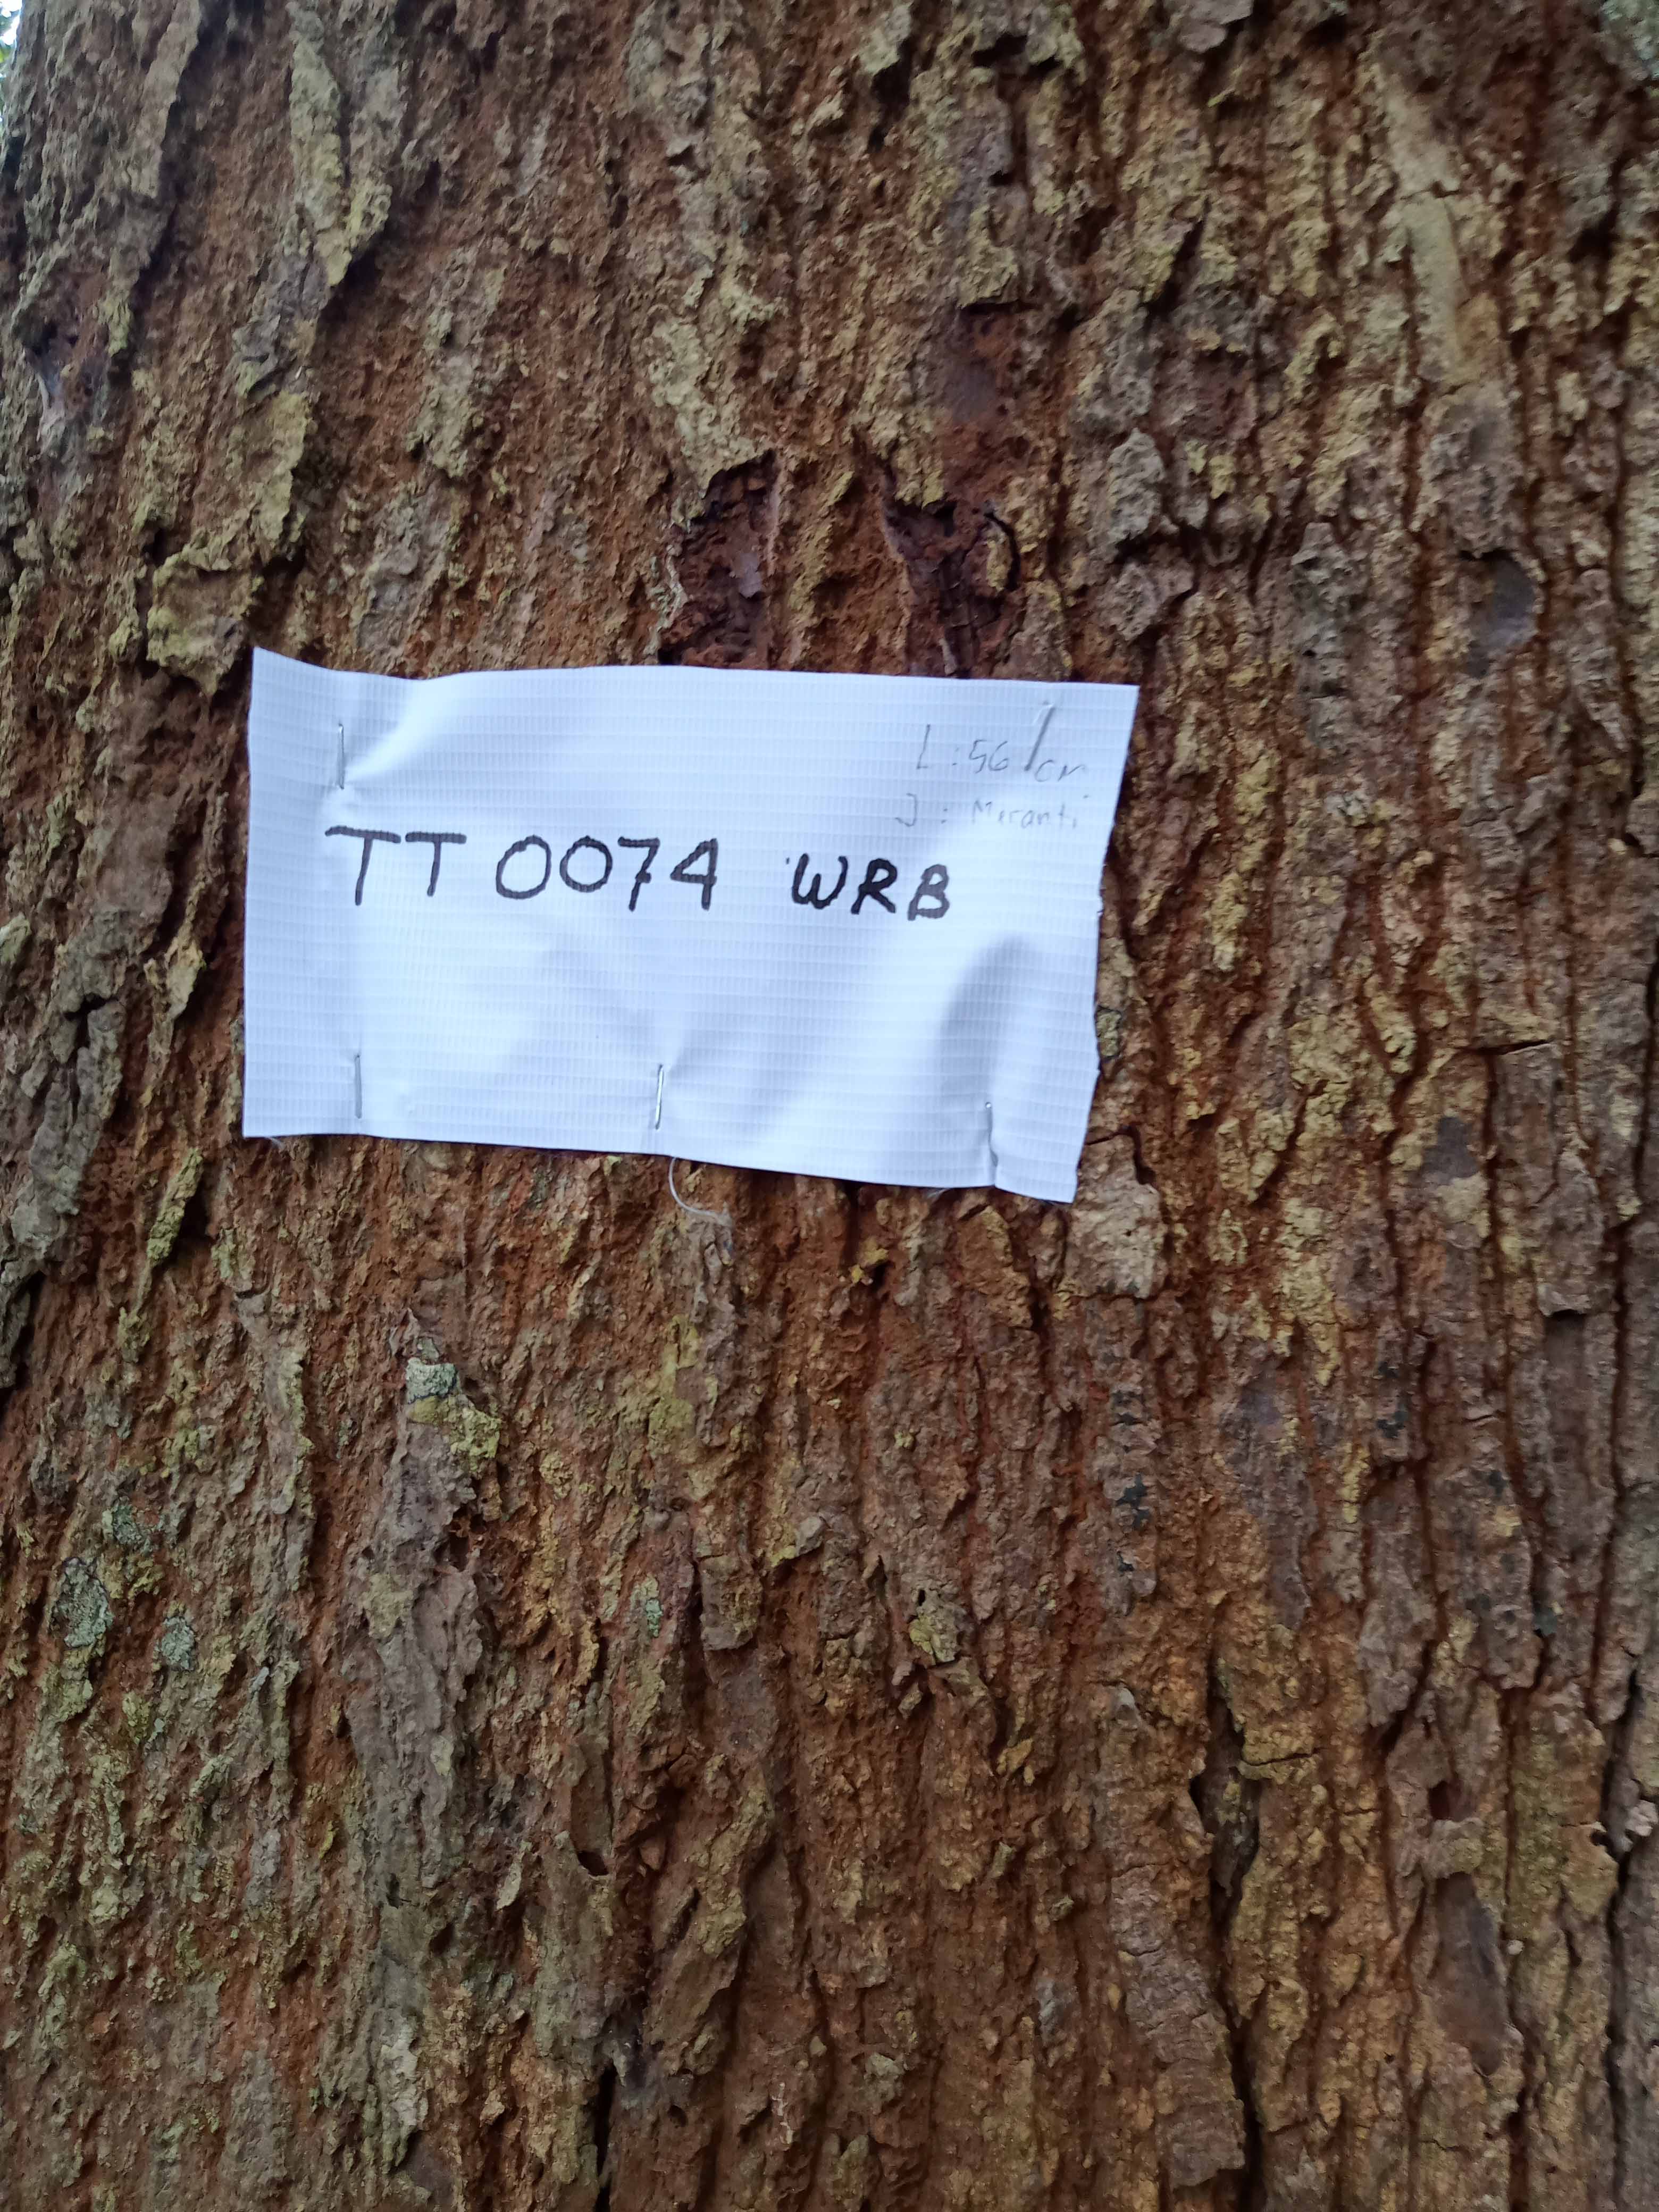 L : 56 cm
J : Meranti
TT 0074 WRB